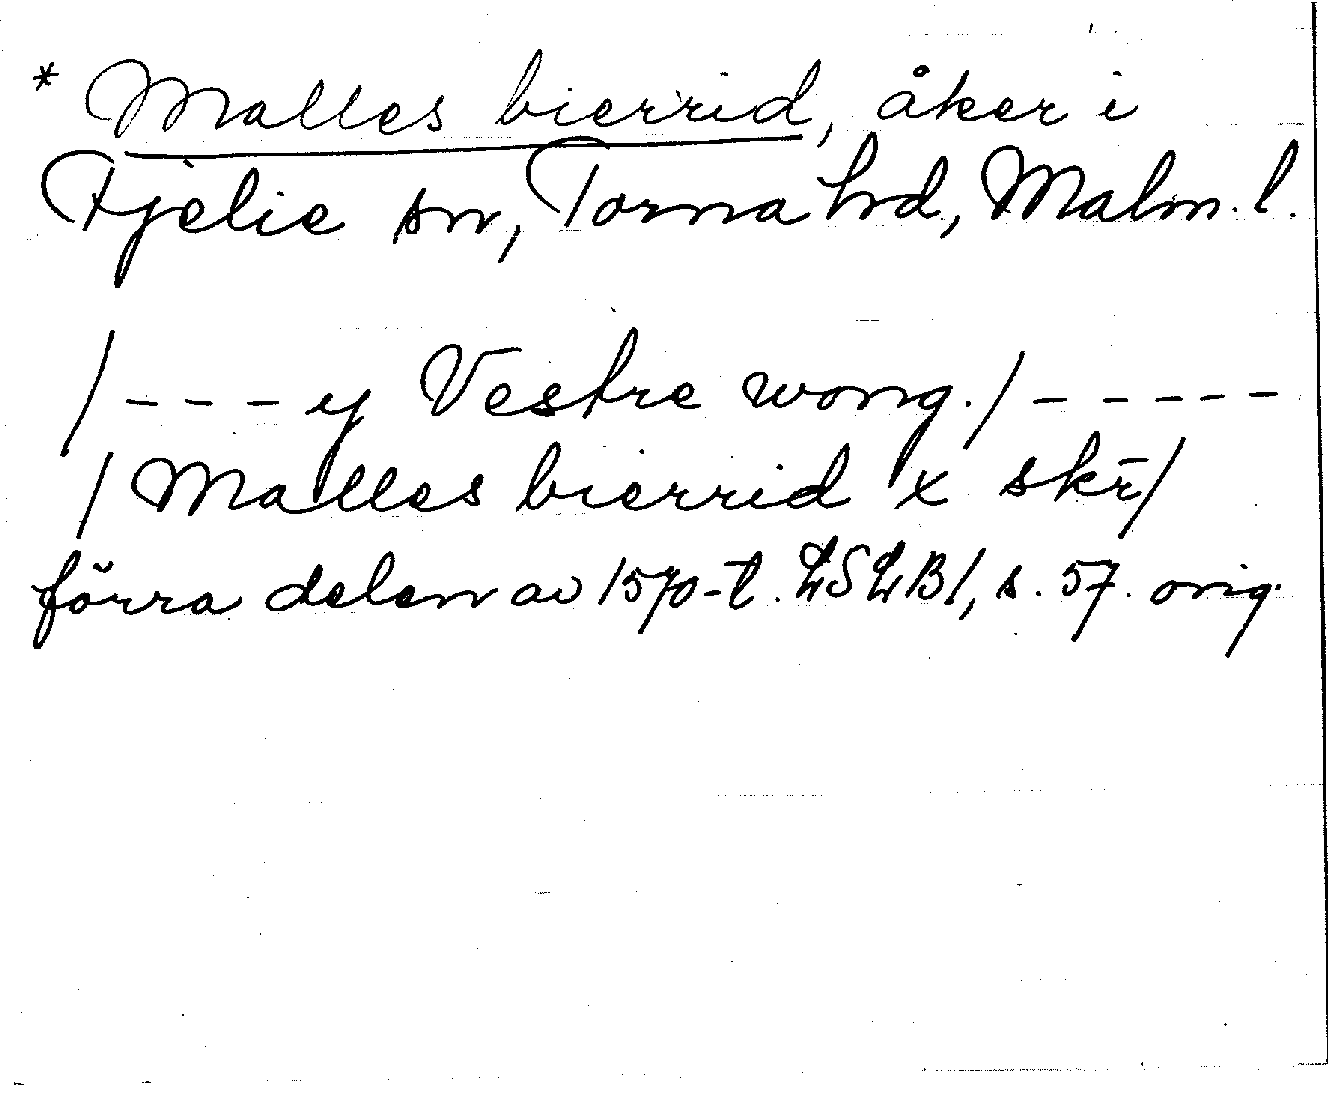 * Malles bierrid, åker i
Fjelie sn, Torna hd, Malm. l.
/ - - - y Vestre wong. / - - - - -
/ Malles bierrid x skr̄ /
förra delen av 1570-t. LSLB 1, s. 57. orig.